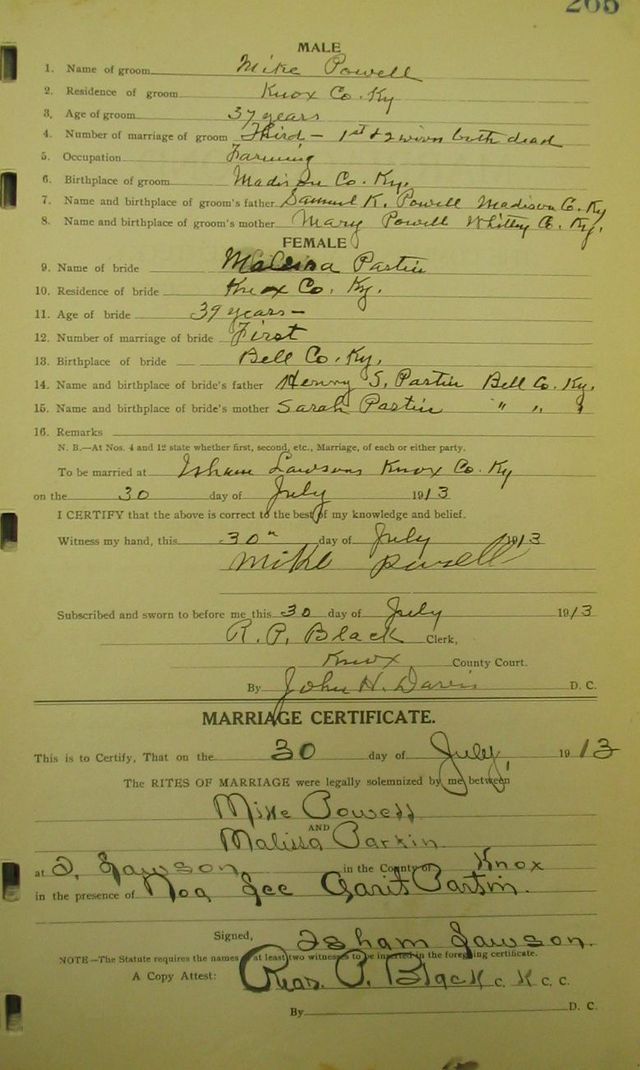 266
MALE
1. Name of groom Mike Powell
2. Residence of groom Knox Co. Ky
3. Age of groom 37 years
4. Number of marriage of groom Third – 1st & 2 wives both dead
5. Occupation Farming
6. Birthplace of groom Madison Co. Ky.
7. Name and birthplace of groom's father Samuel K. Powell Madison Co. Ky
8. Name and birthplace of groom's mother Mary Powell Whitley Co. Ky.
FEMALE
9. Name of bride Malissa Partin
10. Residence of bride Knox Co. Ky.
11. Age of bride 39 years –
12. Number of marriage of bride First
13. Birthplace of bride Bell Co. Ky.
14. Name and birthplace of bride's father Henry S. Partin Bell Co. Ky.
15. Name and birthplace of bride's mother Sarah Partin " " "
16. Remarks
N. B.—At Nos. 4 and 12 state whether first, second, etc., Marriage, of each or either party.
To be married at Isham Lawsons Knox Co. Ky
on the 30 day of July 1913
I CERTIFY that the above is correct to the best of my knowledge and belief.
Witness my hand, this 30" day of July 1913
Mike Powell
Subscribed and sworn to before me this 30 day of July 1913
R. P. Black Clerk,
Knox County Court.
By John H. Davis D. C.
MARRIAGE CERTIFICATE.
This is to Certify, That on the 30 day of July, 1913
The RITES OF MARRIAGE were legally solemnized by me between
Mike Powell
AND
Malissa Partin
at I, Lawson in the County of Knox
in the presence of Noa Lee Partin.
Signed, Isham Lawson.
NOTE—The Statute requires the names of at least two witnesses to be inserted in the foregoing certificate.
A Copy Attest: P. Black C. K C. C.
By D. C.